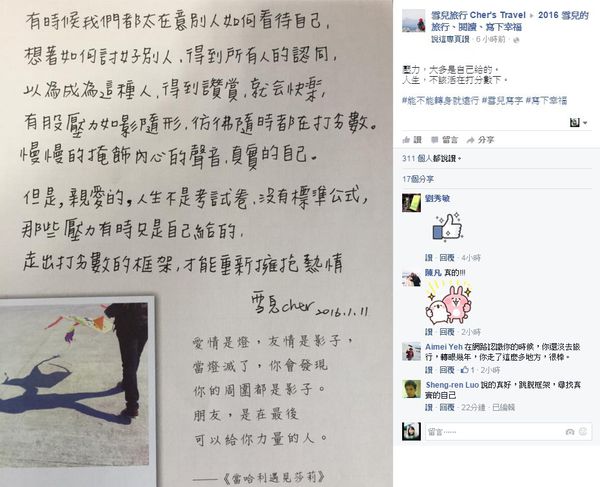 有時候我們都太在意別人如何看待自己,
想著如何討好別人,得到所有人的認同,
以為成為這種人,得到讚賞,就会快樂,
有股壓力如影隨形,彷彿隨時都在打分數。
慢慢的掩飾內心的聲音,真實的自己。
但是,親愛的,人生不是考試卷,沒有標準公式,
那些壓力有時只是自己給的,
走出打分數的框架,才能重新擁抱熱情
雪兒cher 2016.1.11
愛情是燈,友情是影子,
當燈滅了,你會發現
你的周圍都是影子。
朋友,是在最後
可以給你力量的人。
——《當哈利遇見莎莉》
雪兒旅行 Cher's Travel ▸ 2016 雪兒的
旅行、閱讀、寫下幸福
說這專頁讚 · 6 小時前 ·
壓力,大多是自己給的。
人生,不該活在打分數下。
#能不能轉身就遠行 #雪兒寫字 #寫下幸福
讚 留言 分享
311 個人都說讚。
17個分享
劉秀敏
讚 · 回覆 · 4小時
陳凡 真的!!!
讚 · 回覆 · 2小時
Aimei Yeh 在網路認識你的時候,你還沒去旅
行,轉眼幾年,你走了這麼多地方,很棒。
讚 · 回覆 · 1 · 2小時
Sheng-ren Luo 說的真好,跳脫框架,尋找真
實的自己
讚 · 回覆 · 22分鐘 · 已編輯
留言......